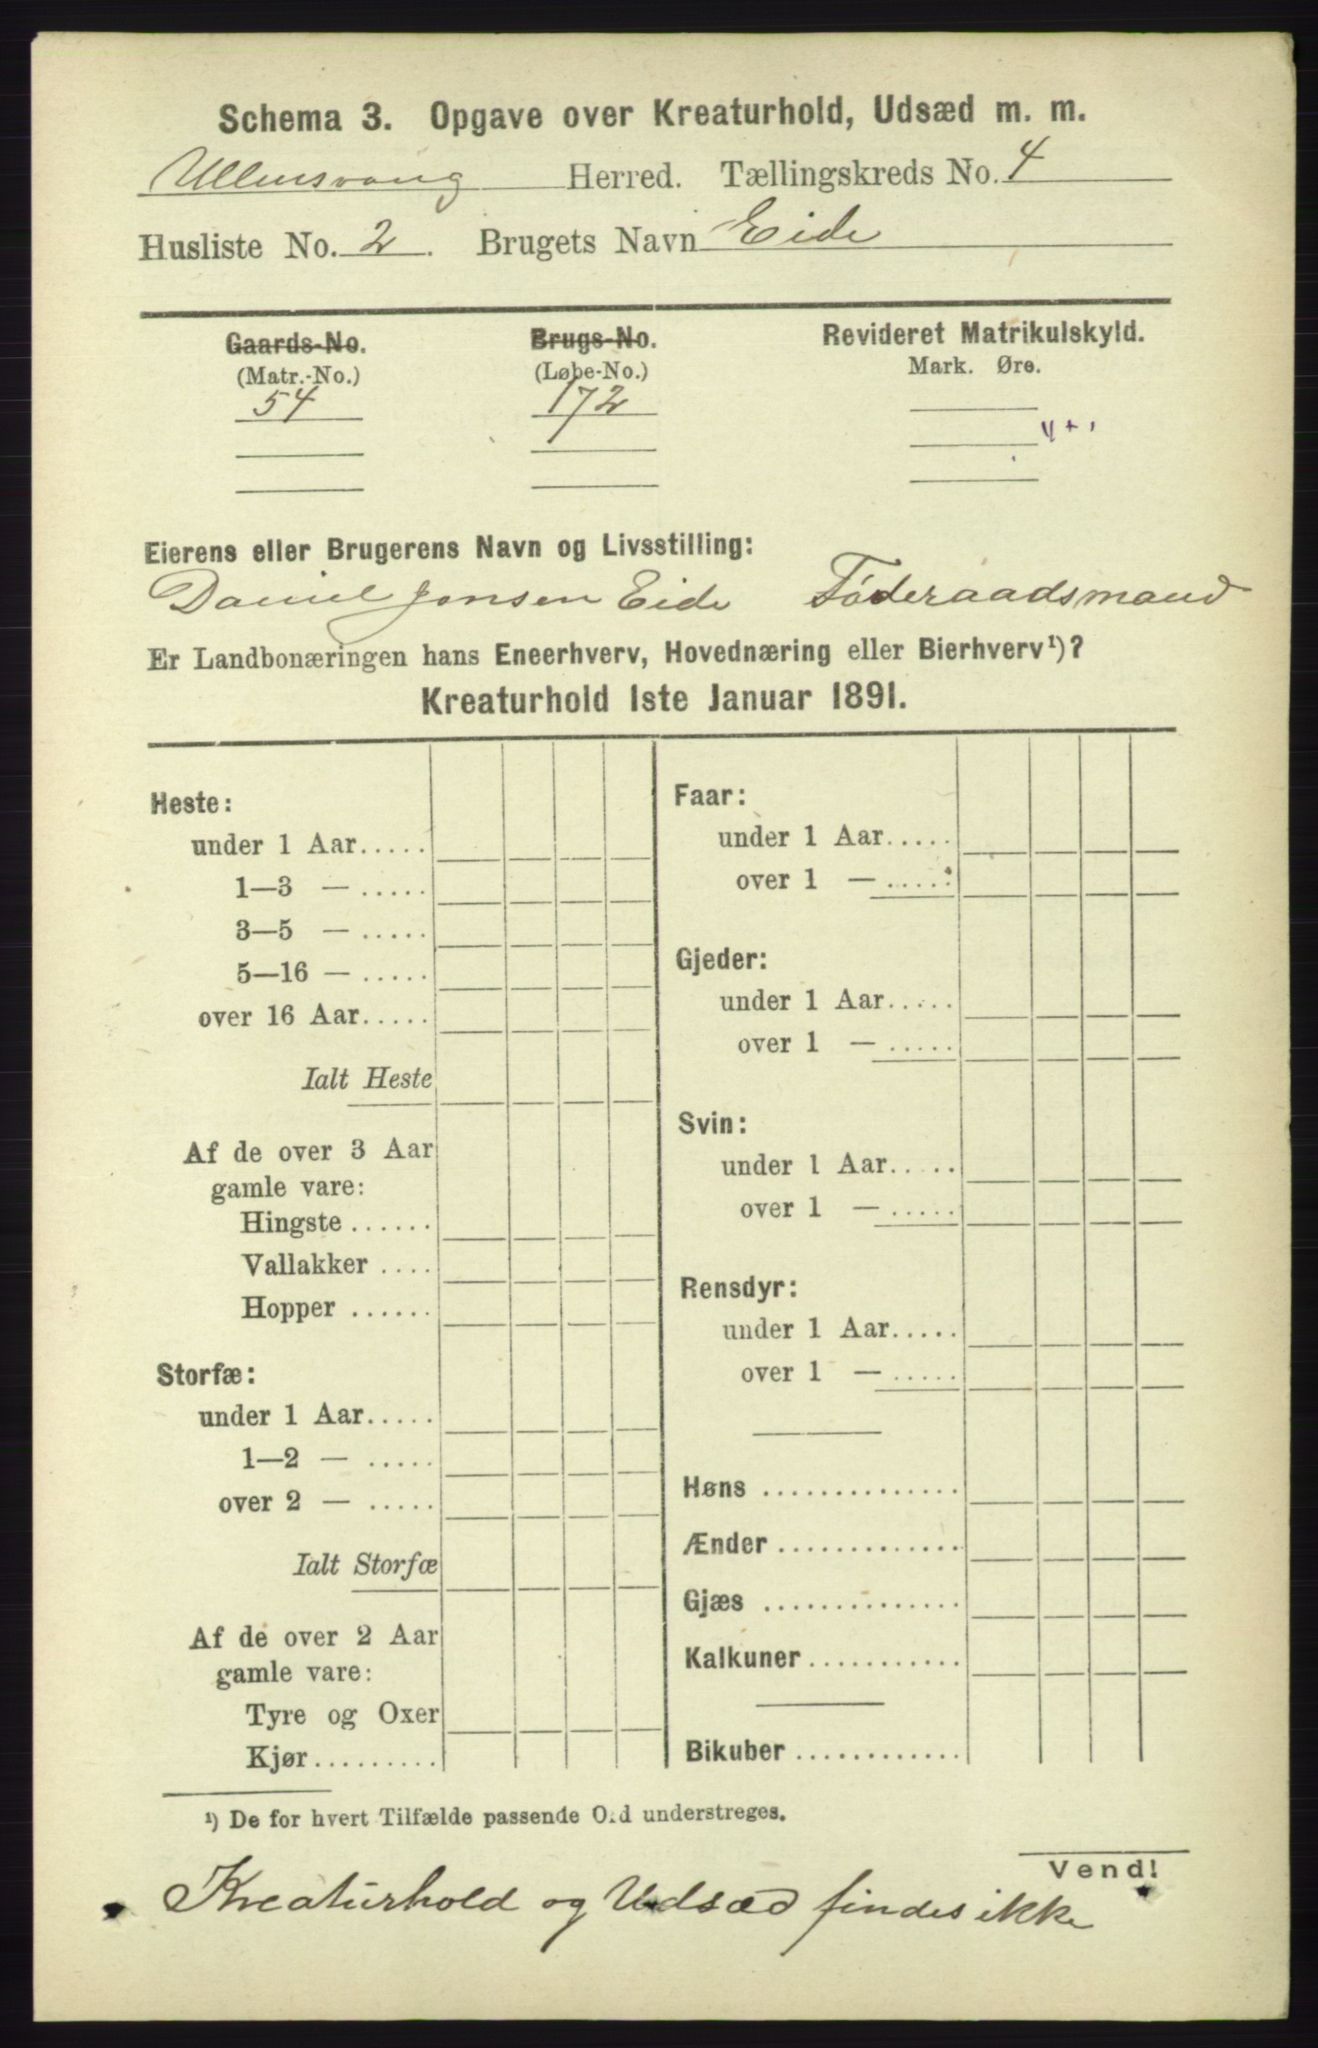 Schema 3. Opgave over Kreaturhold, Udsæd m. m.
Ullensvang Herred. Tællingskreds No. 4
Husliste No. 2. Brugets Navn Eide
Gaards-No. Brugs-No. Revideret Matrikulskyld.
(Matr.-No.) (Løbe-No.) Mark. Øre.
54 172
Eierens eller Brugerens Navn og Livsstilling:
Daniel Jonsen Eide Føderaadsmand
Er Landbonæringen hans Eneerhverv, Hovednæring eller Bierhverv¹)?
Kreaturhold 1ste Januar 1891.
Heste:
under 1 Aar.....
1—3 — .....
3—5 — .....
5—16 — .....
over 16 Aar.....
Ialt Heste
Af de over 3 Aar
gamle vare:
Hingste ......
Vallakker ....
Hopper ......
Storfæ:
under 1 Aar.....
1—2 — .....
over 2 — .....
Ialt Storfæ
Af de over 2 Aar
gamle vare:
Tyre og Oxer
Kjør.........
Faar:
under 1 Aar.....
over 1 — .....
Gjeder:
under 1 Aar.....
over 1 — .....
Svin:
under 1 Aar.....
over 1 — .....
Rensdyr:
under 1 Aar.....
over 1 — .....
Høns ..............
Ænder .............
Gjæs ..............
Kalkuner...........
Bikuber ............
¹) De for hvert Tilfælde passende Ord understreges.
Vend!
Kreaturhold og Udsæd findes ikke